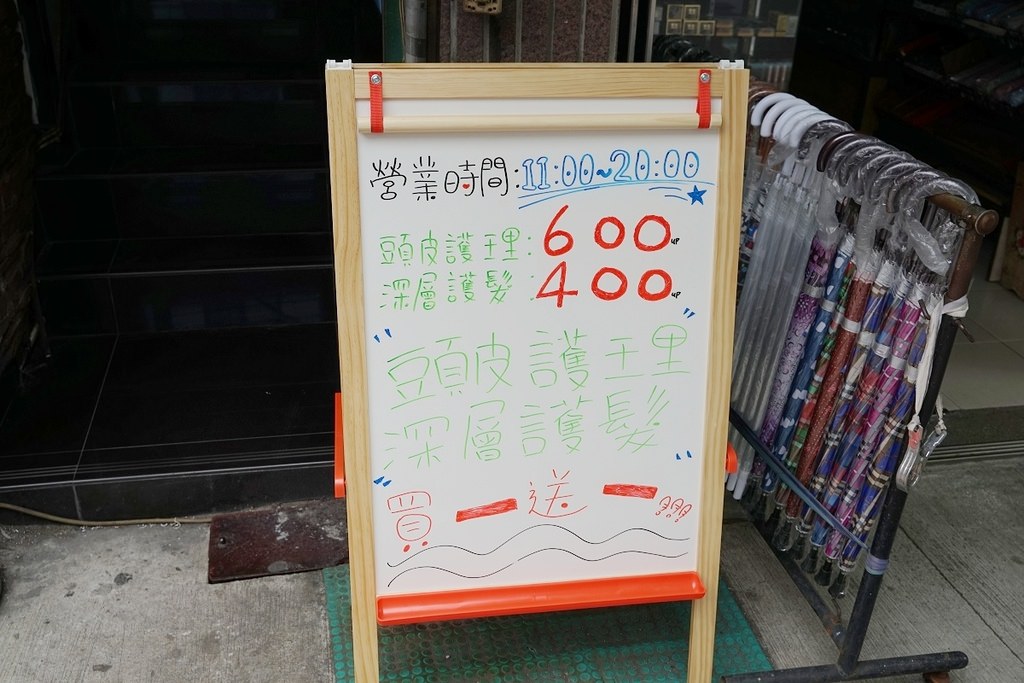 營業時間:11:00~20:00
頭皮護理:600up
深層護髮:400up
頭皮護理
深層護髮
買一送一!!!